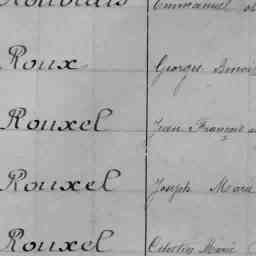 Emmanuel
Roux Georges Benoi
Rouxel Jean François
Rouxel Joseph Marie
Rouxel Célestin Marie